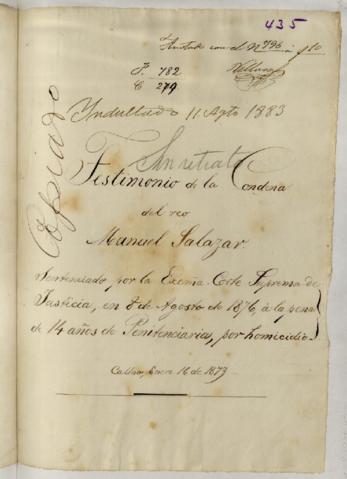 435
Anotado con el Nº 796 á f 10
F. 782
C 279
Yndultado 11 Agto 1883
Copiado
Sin retrato
Testimonio de la Condena
del reo
Manuel Salazar
Sentenciado por la Exema. Corte Suprema de
Justicia, en 8 de Agosto de 1876, à la pena
de 14 años de Penitenciaria, por homicidio
Callao, Enero 16 de 1879